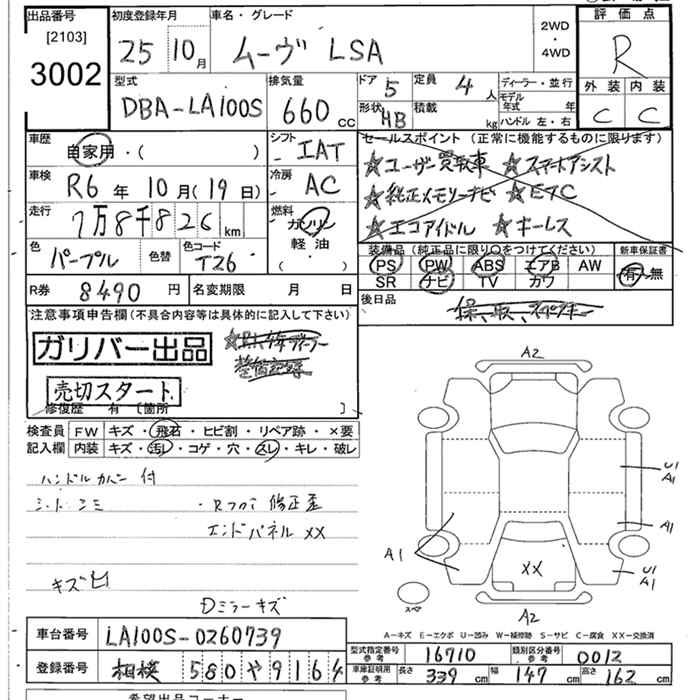 出品番号 初度登録年月 車名・グレード 2WD・4WD 評価点
[2103] 3002 25 10月 ムーヴ LSA R
外装 内装
C C
型式 排気量 ドア 5 定員 4人 ディーラー・並行
DBA-LA100S 660cc 形状 HB 積載 kg モデル年式 年
ハンドル 左・右
車歴 自家用・( ) シフト IAT セールスポイント (正常に機能するものに限ります)
★ユーザー買取車 ★スマートアシスト
車検 R6年10月(19日) 冷房 AC ★純正メモリーナビ ★ETC
走行 7万8千826km 燃料 ガソリン ★エコアイドル ★キーレス
軽油
( )
色 パープル 色替 色コード T26 装備品 (純正品に限り○をつけてください) 新車保証書
PS PW ABS エアB AW 有・無
SR ナビ TV カワ
R券 8490円 名変期限 月 日 後日品
注意事項申告欄(不具合内容等は具体的に記入して下さい)
ガリバー出品
売切スタート
修復歴 有 [箇所 ]
検査員 FW キズ・飛石・ヒビ割・リペア跡・×要
記入欄 内装 キズ・汚レ・コゲ・穴・スレ・キレ・破レ
ハンドルカバー付
シートシミ ・Rフロア修正歪
エンドパネル XX
キズ凹
Dミラーキズ
A2
U1
A1
A1
A1
U1
A1
XX
スペア
A2
A－キズ E－エクボ U－凹み W－補修跡 S－サビ C－腐食 XX－交換済
車台番号 LA100S-0260739
型式指定番号 参考 16710 類別区分番号 参考 0012
登録番号 相模 580 や 9164
車庫証明用 参考 長さ 339cm 幅 147cm 高さ 162cm
希望出品コーナー